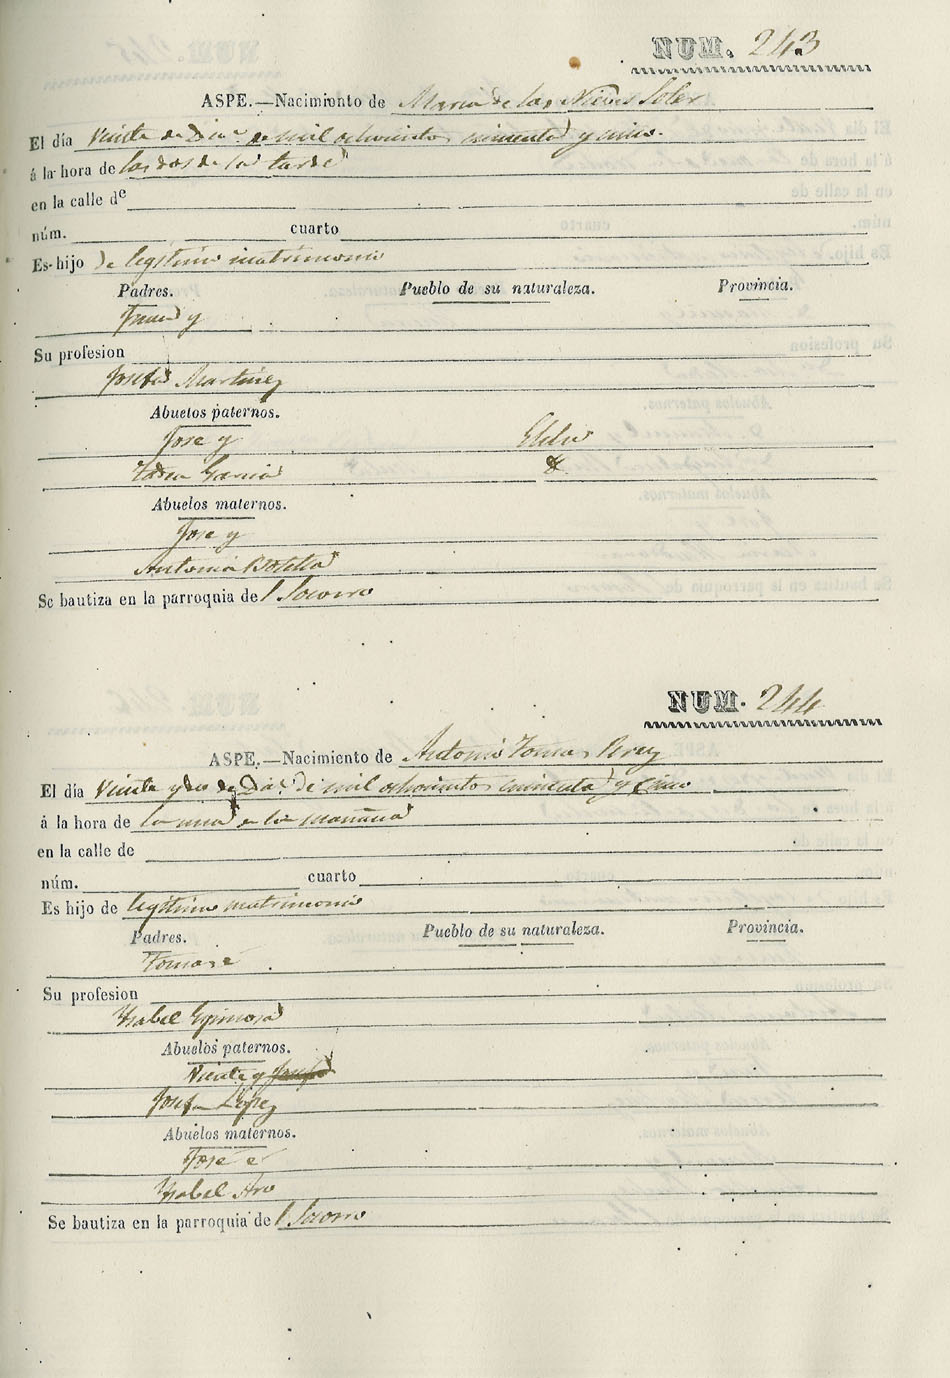 NUM. 243
ASPE.—Nacimiento de Maria de las Nieves Soler
El día Veinte de Dic.e de mil ochocientos cincuenta y cinco.
á la hora de las dos de la tarde
en la calle de
núm. cuarto
Es hijo de legitimo matrimonio
Padres. Pueblo de su naturaleza. Provincia.
y
Su profesion
Josefa Martinez
Abuelos paternos.
Jose y Elda
Garcia
Abuelos maternos.
Jose y
Antonia Botella
Se bautiza en la parroquia del Socorro
NUM. 244
ASPE.—Nacimiento de Antonio Tomas Perez
El día Veinte y dos de Dic.e de mil ochocientos cincuenta y cinco
á la hora de la una de la mañana
en la calle de
núm. cuarto
Es hijo de legitimo matrimonio
Padres. Pueblo de su naturaleza. Provincia.
Tomas e
Su profesion
Ysabel Espinosa
Abuelos paternos.
Vicente y
Josefa Lopez
Abuelos maternos.
Jose e
Ysabel Aro
Se bautiza en la parroquia del Socorro